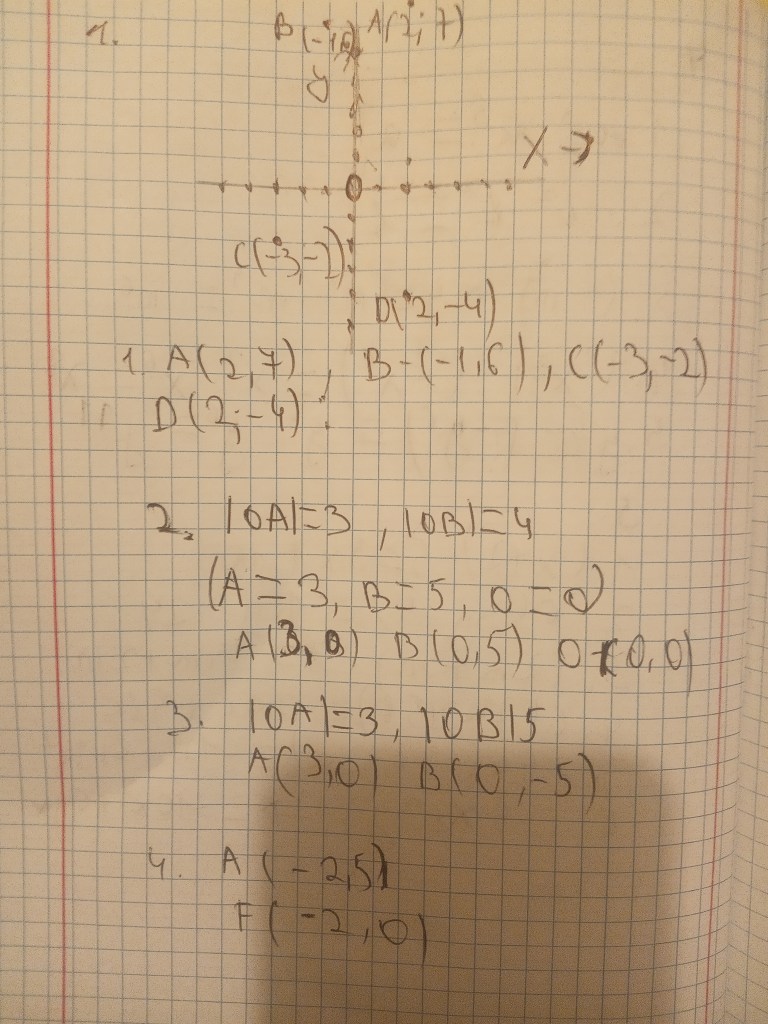 1. B(-1,6) A(2; 7)
y
X →
0
C(-3,-2)
D(2,-4)
1. A(2,7) , B-(-1,6) , C(-3,-2)
D(2;-4) :
2. |OA|=3 , |OB|=4
(A=3, B=5, 0=0)
A(3,0) B(0,5) O-(0,0)
3. |OA|=3, |OB|5
A(3,0) B(0,-5)
4. A(-2,5)
F(-2,0)